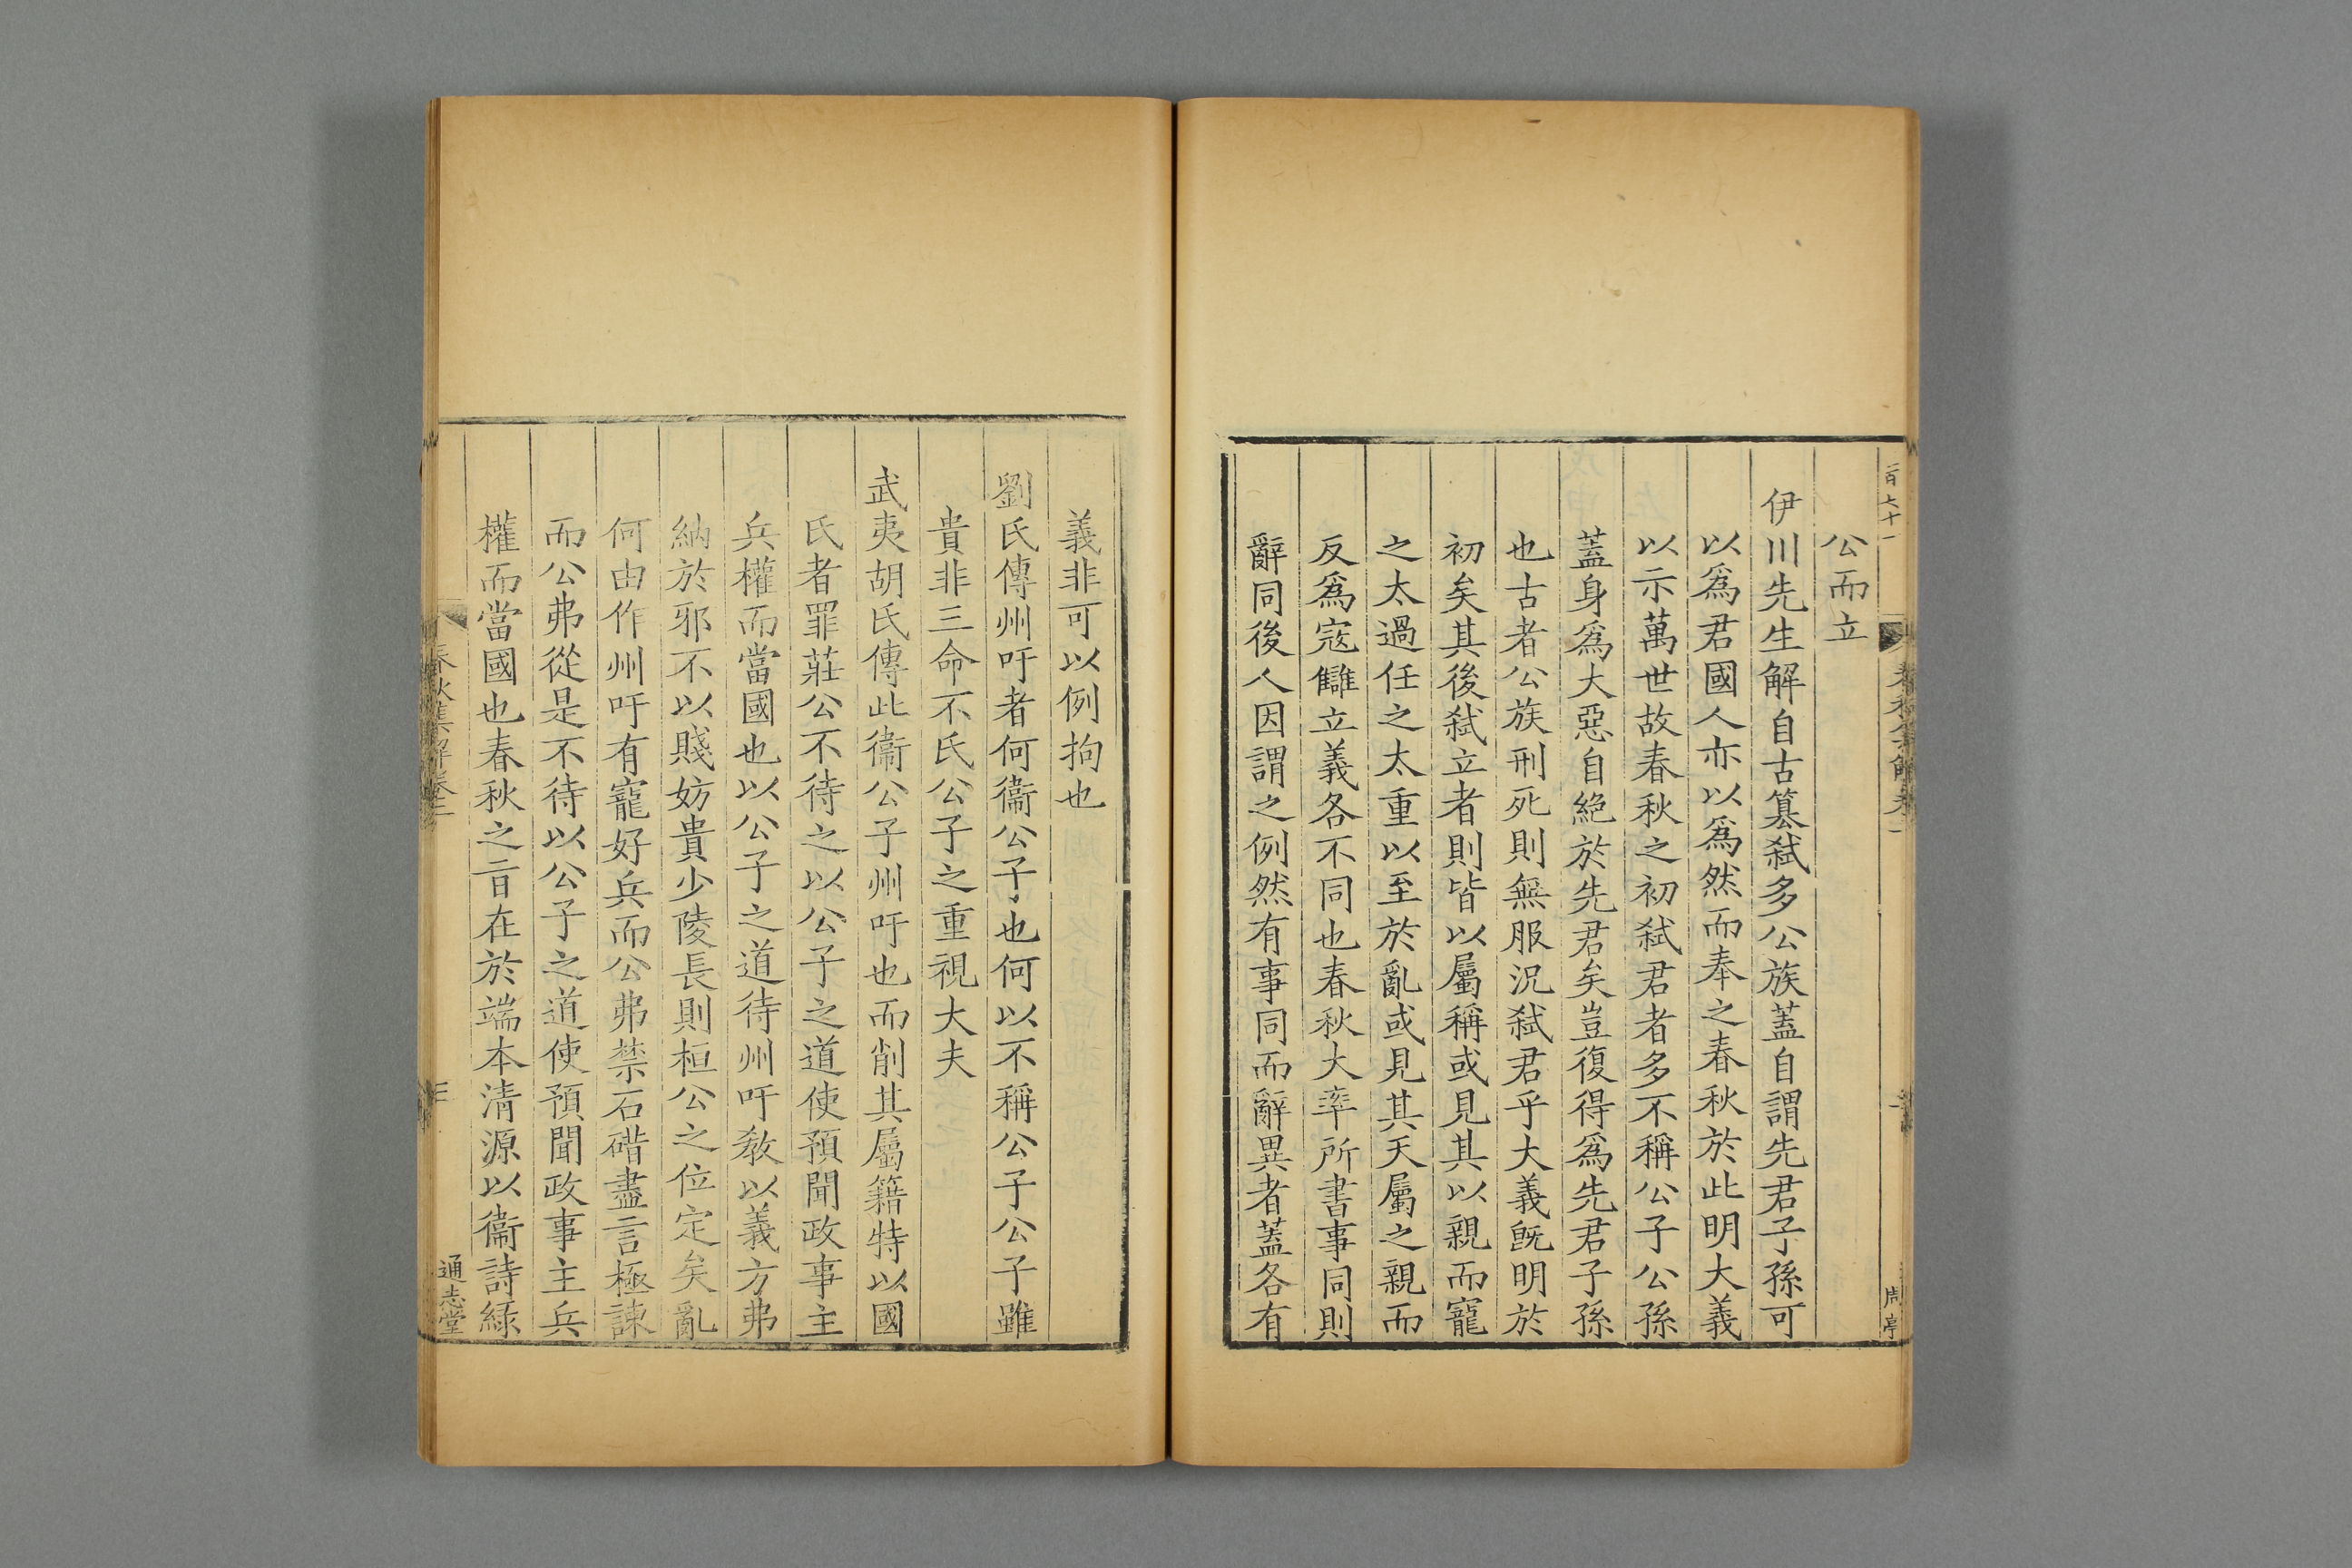 公而立
伊川先生解自古簒弑多公族蓋自謂先君子孫可
以爲君國人亦以爲然而奉之春秋於此明大義
以示萬世故春秋之初弑君者多不稱公子公孫
蓋身爲大惡自絶於先君矣豈復得爲先君子孫
也古者公族刑死則無服況弑君乎大義旣明於
初矣其後弑立者則皆以屬稱或見其以親而寵
之太過任之太重以至於亂或見其天屬之親而
反爲寇讎立義各不同也春秋大率所書事同則
辭同後人因謂之例然有事同而辭異者蓋各有
義非可以例拘也
劉氏傳州吁者何衞公子也何以不稱公子公子雖
貴非三命不氏公子之重視大夫
武夷胡氏傳此衞公子州吁也而削其屬籍特以國
氏者罪莊公不待之以公子之道使預聞政事主
兵權而當國也以公子之道待州吁敎以義方弗
納於邪不以賤妨貴少陵長則桓公之位定矣亂
何由作州吁有寵好兵而公弗禁石碏盡言極諫
而公弗從是不待以公子之道使預聞政事主兵
權而當國也春秋之旨在於端本清源以衞詩綠
通志堂